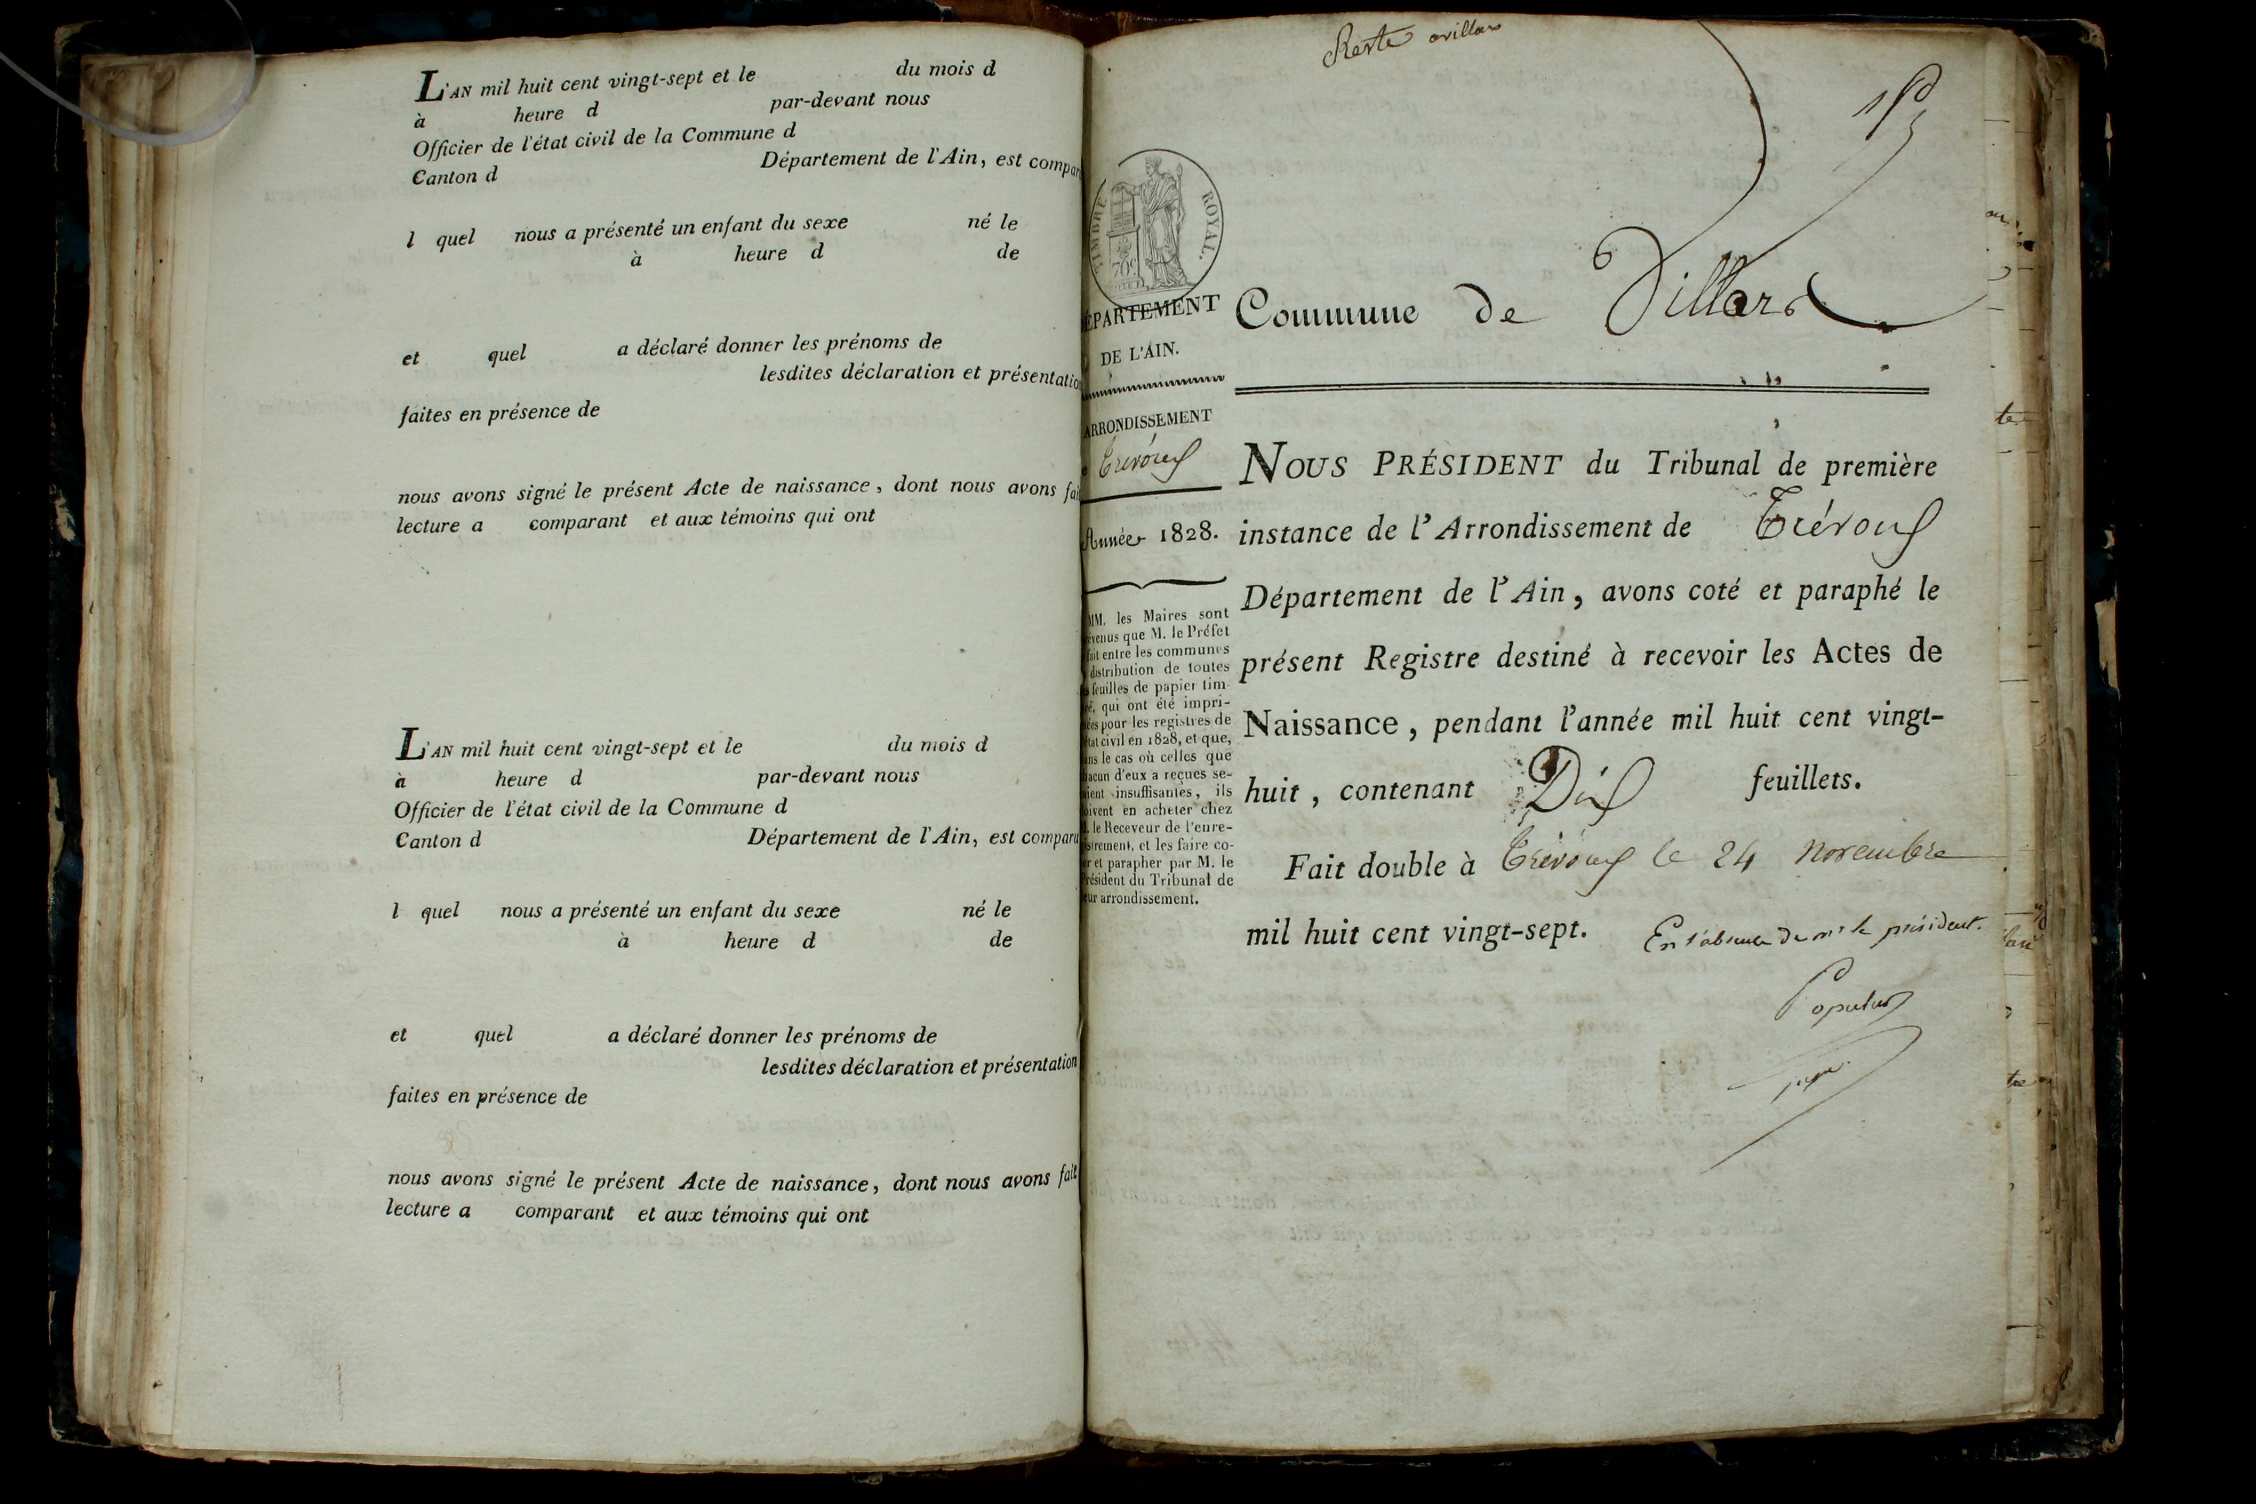 L'AN mil huit cent vingt-sept et le du mois d
à heure d par-devant nous
Officier de l'état civil de la Commune d
Canton d Département de l'Ain, est comparu
l quel nous a présenté un enfant du sexe né le
à heure d de
et quel a déclaré donner les prénoms de
lesdites déclaration et présentation
faites en présence de
nous avons signé le présent Acte de naissance, dont nous avons fait
lecture a comparant et aux témoins qui ont
L'AN mil huit cent vingt-sept et le du mois d
à heure d par-devant nous
Officier de l'état civil de la Commune d
Canton d Département de l'Ain, est comparu
l quel nous a présenté un enfant du sexe né le
à heure d de
et quel a déclaré donner les prénoms de
lesdites déclaration et présentation
faites en présence de
nous avons signé le présent Acte de naissance, dont nous avons fait
lecture a comparant et aux témoins qui ont
TIMBRE ROYAL.
70c
DÉPARTEMENT
DE L'AIN.
ARRONDISSEMENT
Trévoux
Année 1828.
MM. les Maires sont
prévenus que M. le Préfet
fait entre les communes
distribution de toutes
feuilles de papier tim-
bré, qui ont été impri-
mées pour les registres de
état civil en 1828, et que,
dans le cas où celles que
chacun d'eux a reçues se-
roient insuffisantes, ils
doivent en acheter chez
M. le Receveur de l'enre-
gistrement, et les faire co-
ter et parapher par M. le
Président du Tribunal de
leur arrondissement.
Commune de Villars
NOUS PRÉSIDENT du Tribunal de première
instance de l'Arrondissement de Trévoux
Département de l'Ain, avons coté et paraphé le
présent Registre destiné à recevoir les Actes de
Naissance, pendant l'année mil huit cent vingt-
huit, contenant Dix feuillets.
Fait double à Trévoux le 24 novembre
mil huit cent vingt-sept. En l'absence de mr le président.
Populus
juge